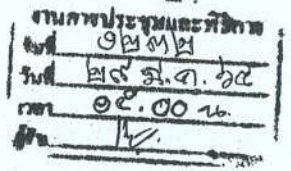 งานการประชุมและพิธีการ
รับที่ ๑๒๓๒
วันที่ ๒๙ มี.ค. ๖๕
เวลา ๑๕.๐๐ น.
ผู้รับ